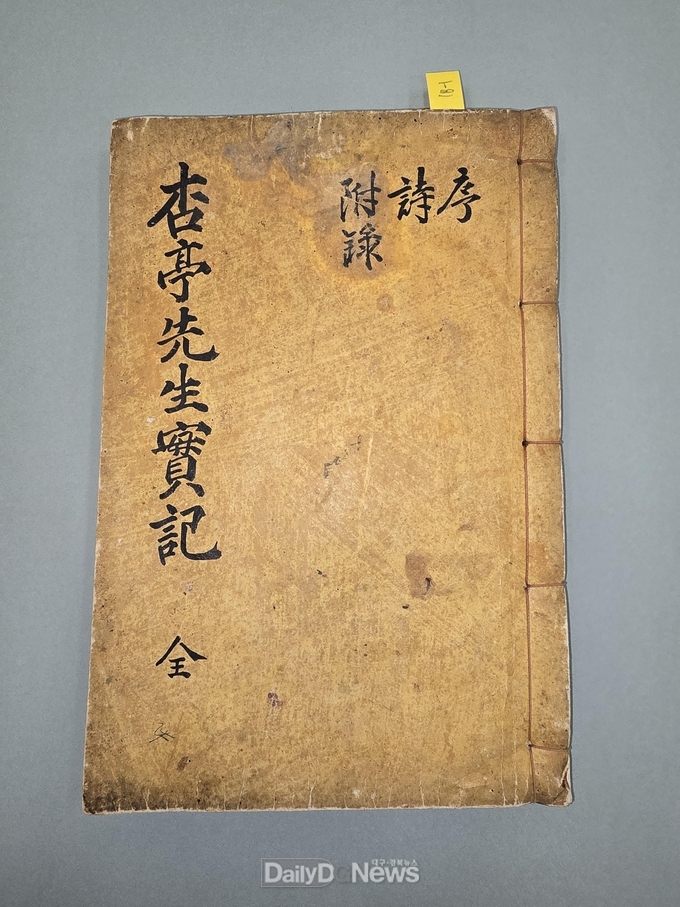 序
詩
附錄
杏亭先生實記 全
대구·경북뉴스
DailyD News